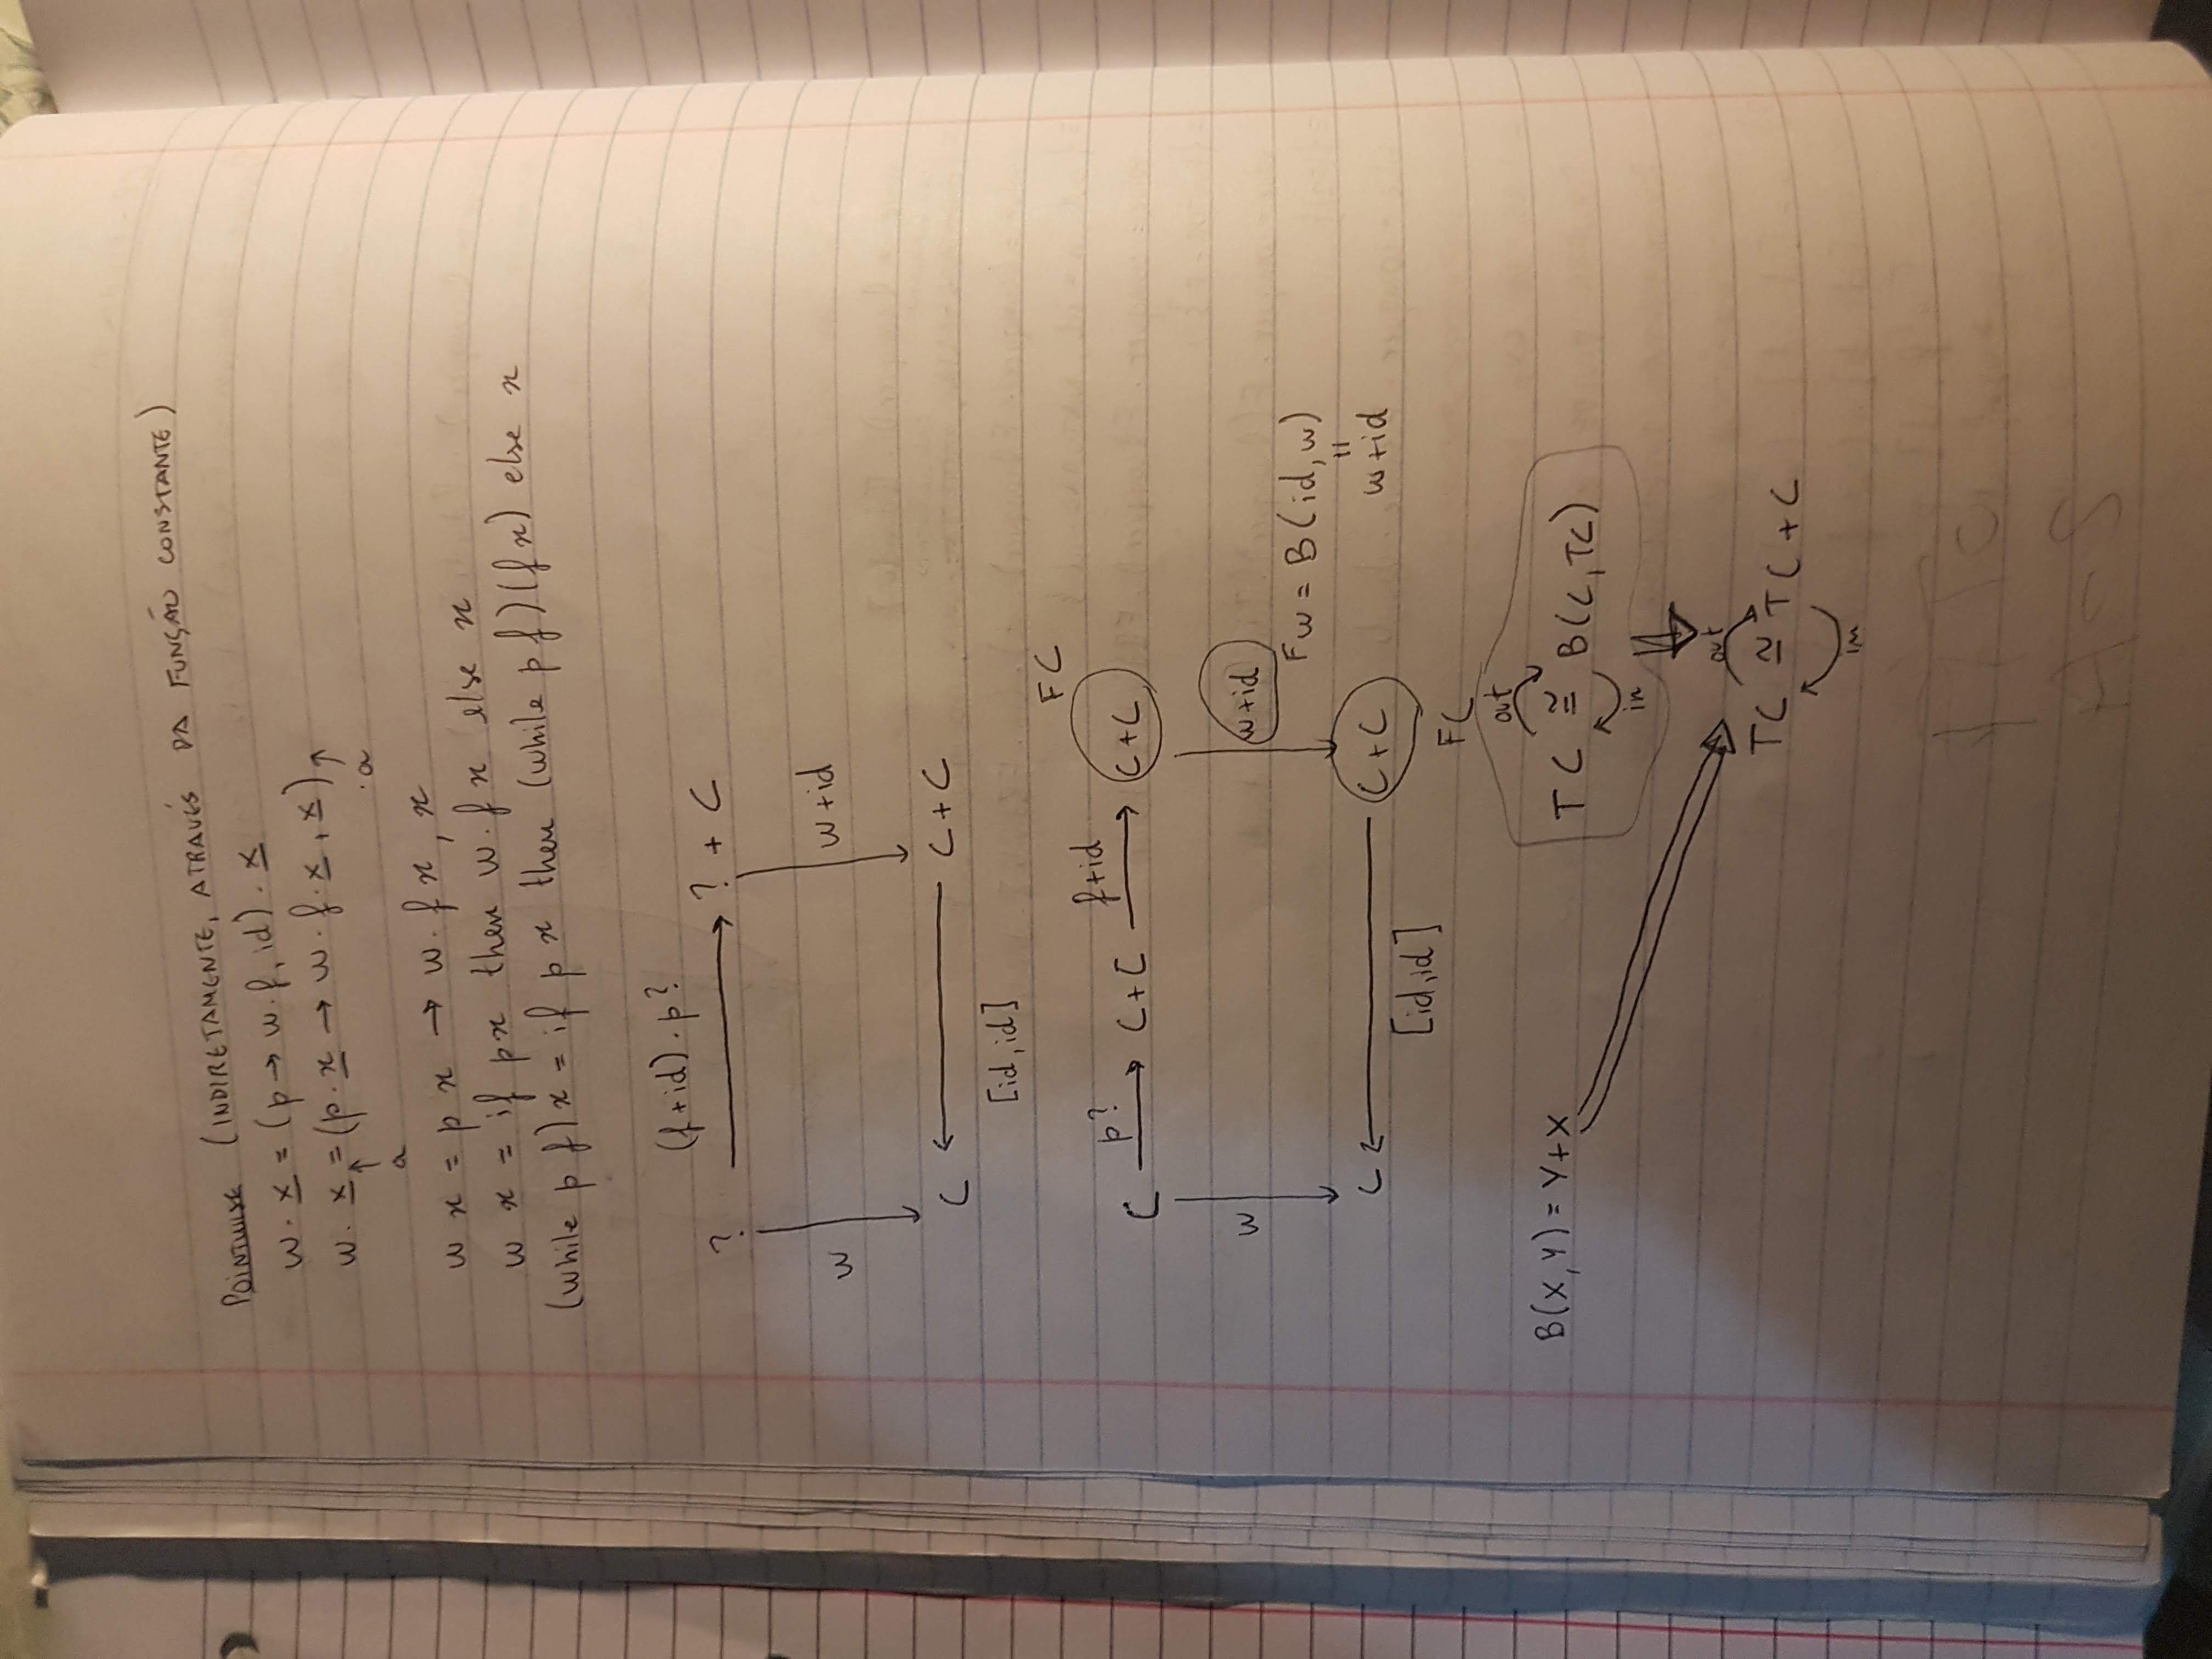 POINTWISE (INDIRETAMENTE, ATRAVÉS DA FUNÇÃO CONSTANTE)
w · x = (p → w · f, id) · x
w · x = (p · x → w · f · x, x)
↑ a ↑ · a
w x = p x → w · f x, x
w x = if p x then w · f x else x
(while p f) x = if p x then (while p f)(f x) else x
(f + id) · p?
? → ? + C
w ↓ ↓ w + id
C ← C + C
[id, id]
FC
C p? → C + C f + id → C + C
w ↓ ↓ w + id
Fw = B(id, w)
=
w + id
C ← C + C
[id, id]
FC
out
B(X, Y) = Y + X
TC ≅ B(C, TC)
in
out
TC ≅ TC + C
in